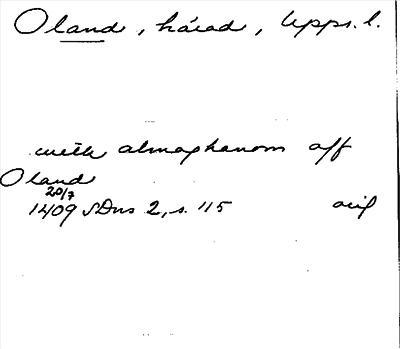 Oland, härad, Upps. l.
meth almoghanom off
Oland
20/7
1409 SDns 2, s. 115 orig